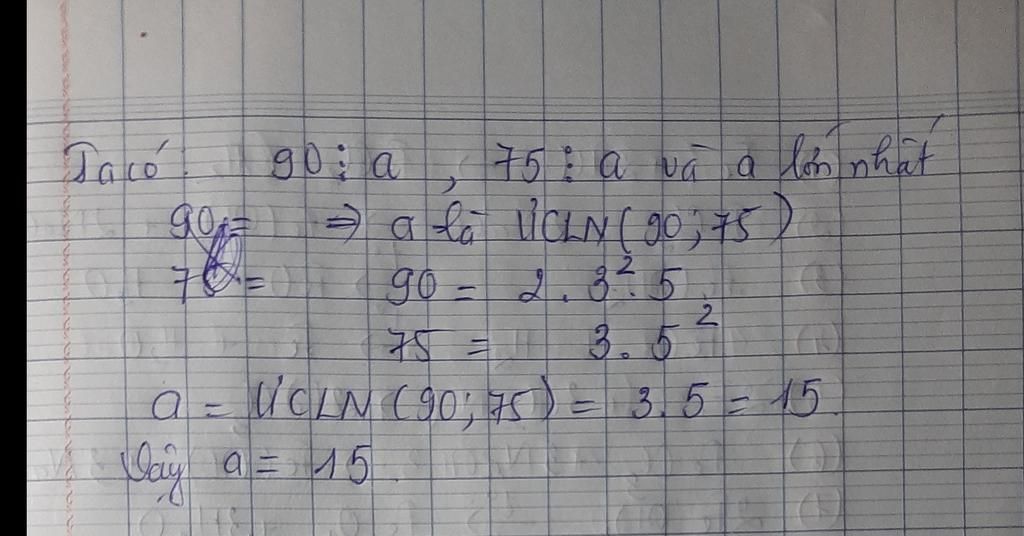 Ta có: 90 ⋮ a , 75 ⋮ a và a lớn nhất
90 = ⇒ a là ƯCLN(90; 75)
7 = 90 = 2 . 3² . 5
75 = 3 . 5²
a = ƯCLN (90; 75) = 3 . 5 = 15
Vậy a = 15